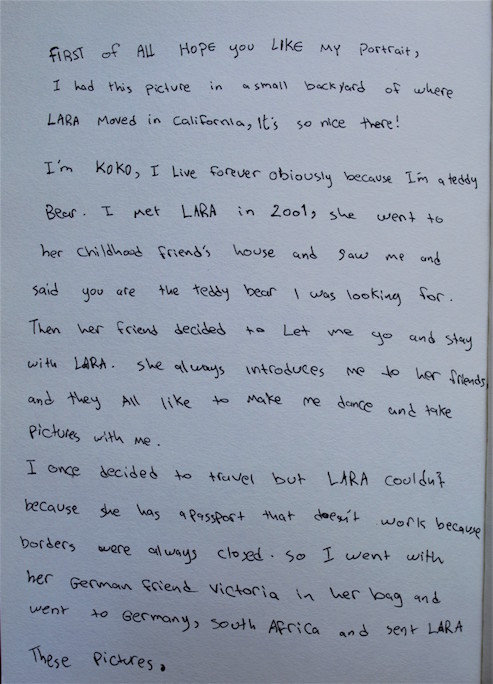 FIRST of ALL HOPE you LIKE MY Portrait,
I had this picture in a small backyard of where
LARA Moved in California, It's so nice there!
I'm KOKO, I Live forever obiously because I'm a teddy
Bear. I met LARA in 2001, she went to
her childhood friend's house and saw me and
said you are the teddy bear I was looking for.
Then her friend decided to Let me go and stay
with LARA. she always introduces me to her friends,
and they All like to make me dance and take
Pictures with me.
I once decided to travel but LARA couldn't
because she has a passport that doesn't work because
borders were always closed. so I went with
her German friend Victoria in her bag and
went to Germany, South Africa and sent LARA
These pictures.